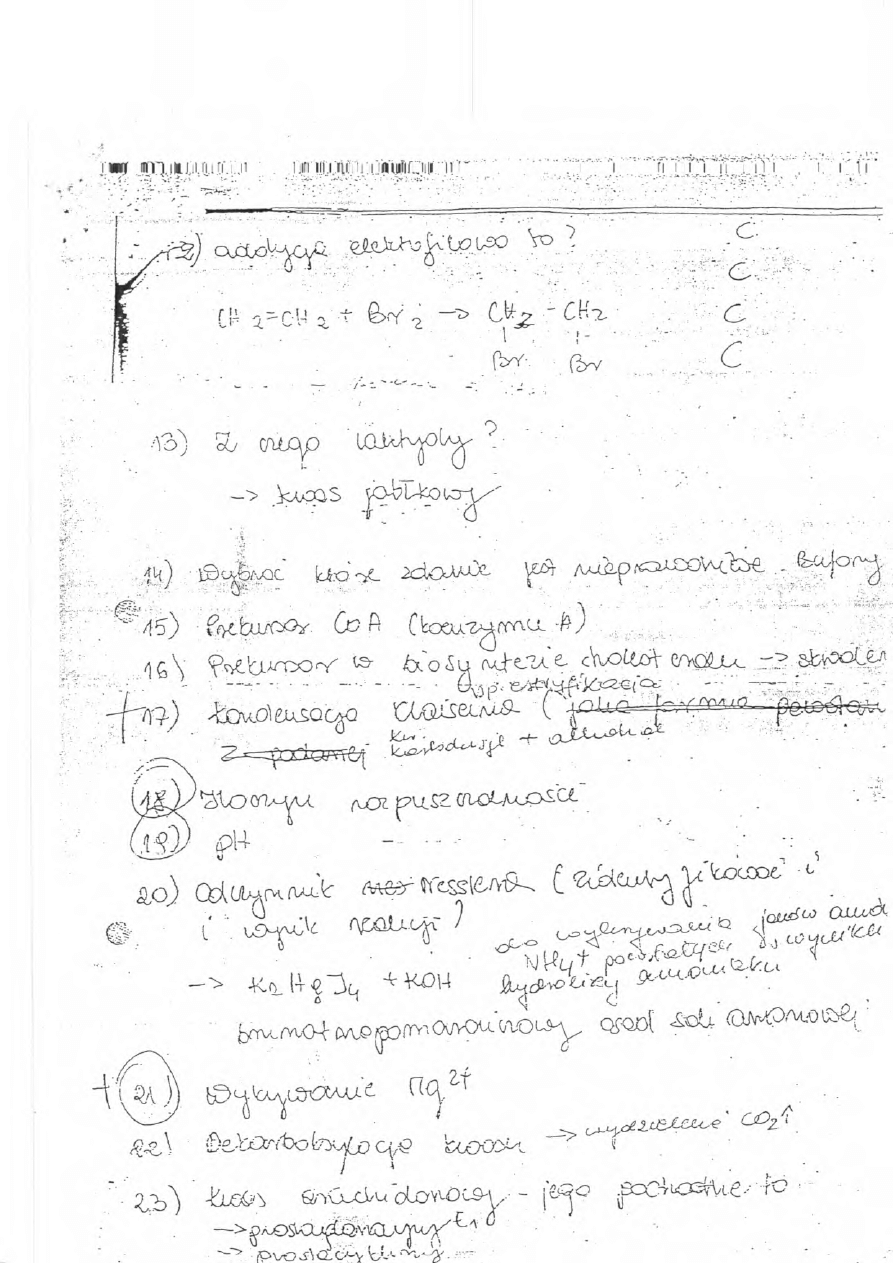 12) addycja elektrofilowa to?
C
C
CH2=CH2 + Br2 -> CH2 - CH2
C
Br Br
C
13) Z czego laktydy?
-> kwas jabłkowy
14) Wybrać które zdanie jest nieprawdziwe. Bufory
15) Prekursor CoA (koenzymu A)
16) Prekursor w biosyntezie cholesterolu -> skwalen
tzp. estryfikacja
17) kondensacja Claisena (jaka forma powstan
z podanej kw. + alkohol
18) Iloczyn rozpuszczalności
19) pH
20) Odczynnik Nesslera (zidentyfikować i
i wynik reakcji)
do wykrywania jonów amon
NH4+ powstałych w wyniku
-> K2HgI4 + KOH hydrolizy amoniaku
brunatnopomarańczowy osad soli amonowej
21) Wykrywanie Mg2+
22) Dekarboksylacja kwasu -> wydzielenie CO2↑
23) kwas arachidonowy - jego pochodne to
-> prostaglandyny E1
-> prostacykliny